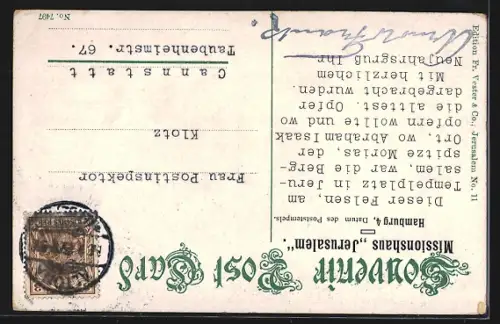 Souvenir Post Card
Missionshaus „Jerusalem"
Hamburg 4, Datum des Poststempels.
Dieser Felsen, am
Tempelplatz in Jeru-
salem, war die Berg-
spitze Morias, der
Ort, wo Abraham Isaak
opfern wollte und wo
die alttest. Opfer
dargebracht wurden.
Mit herzlichem
Neujahrsgruß Ihr
Frau Postinspektor
Klotz
Cannstatt
Taubenheimstr. 67.
Edition Fr. Vester & Co., Jerusalem No. 11
No. 7497